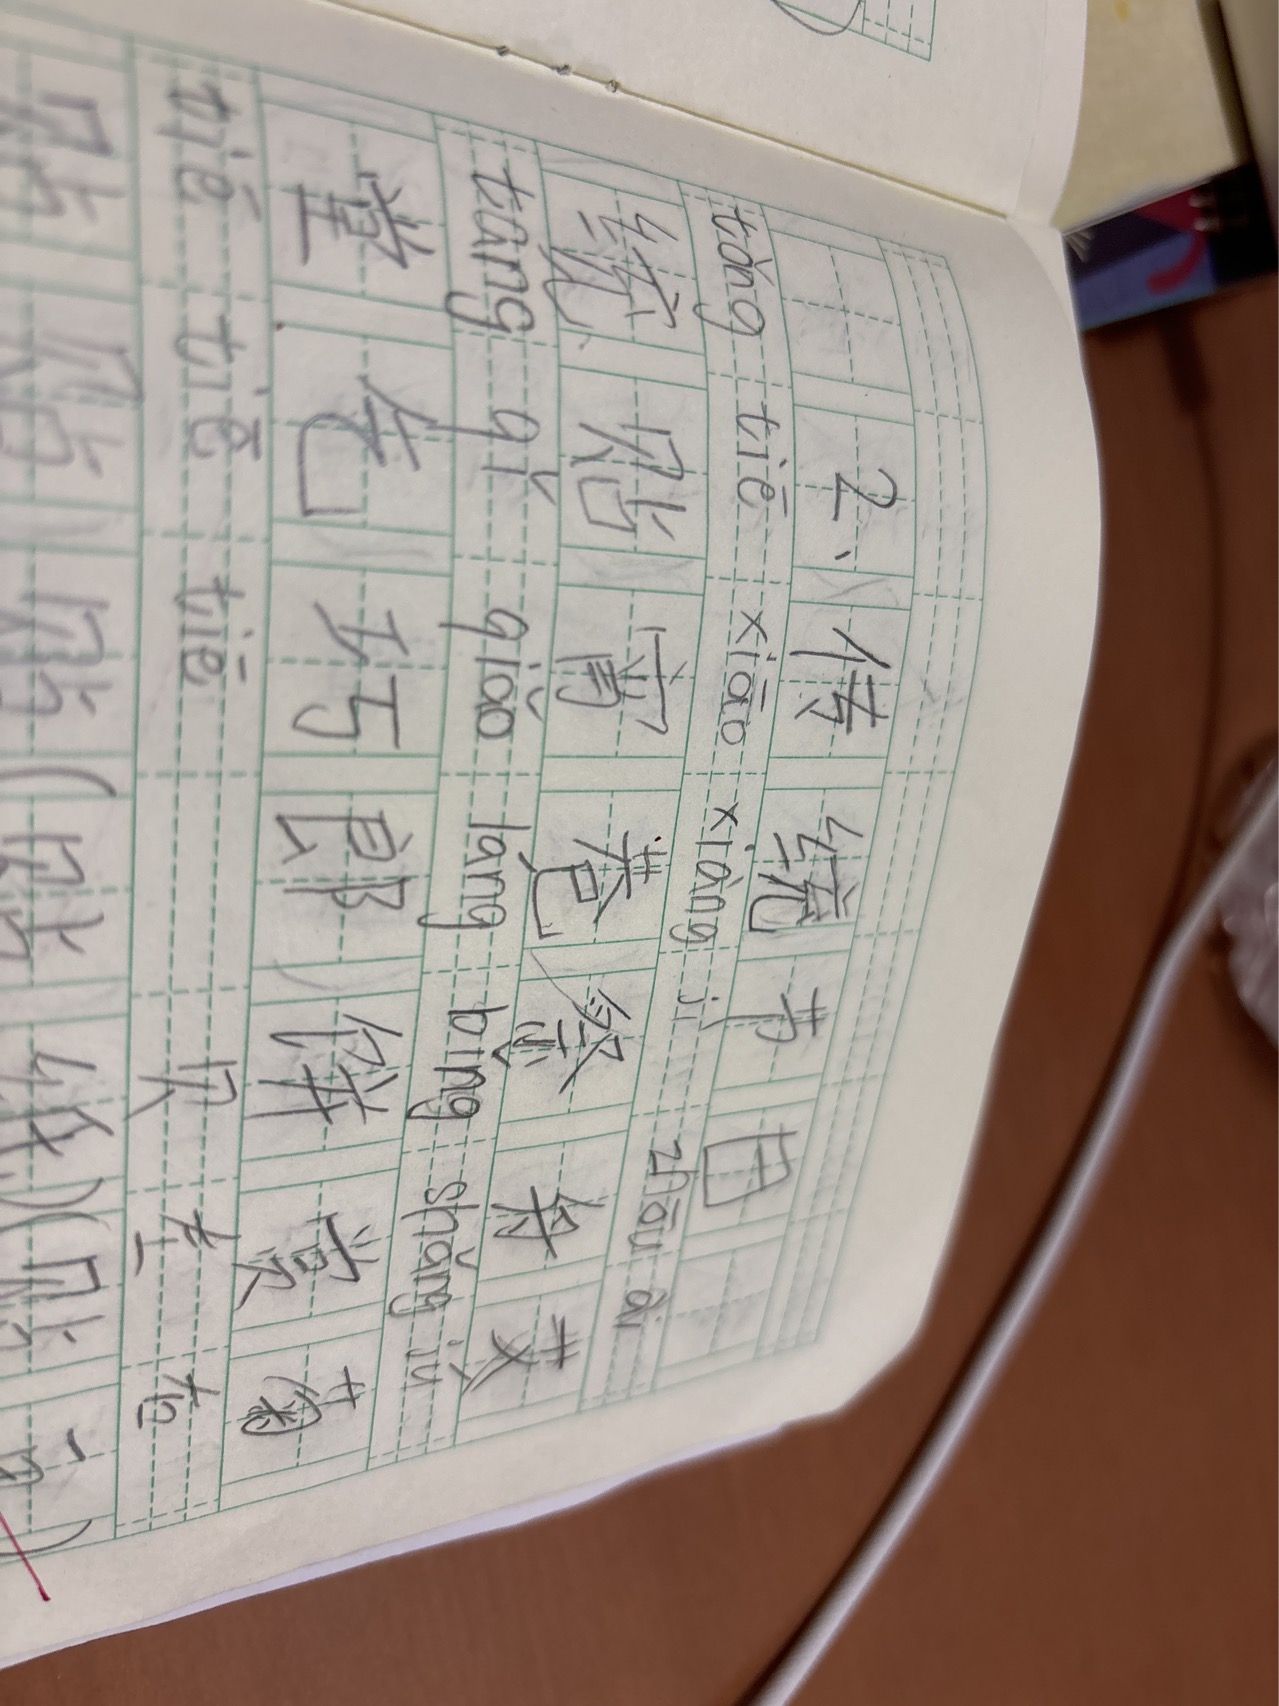 2、传统节日
tǒng tiē xiāo xiàng jì zhōu ài
统贴宵巷祭舟艾
táng qǐ qiǎo láng bǐng shǎng jú
堂乞巧郎饼赏菊
tiē tiē tiē 贝 左 右
贴贴贴(贴 )(贴 )